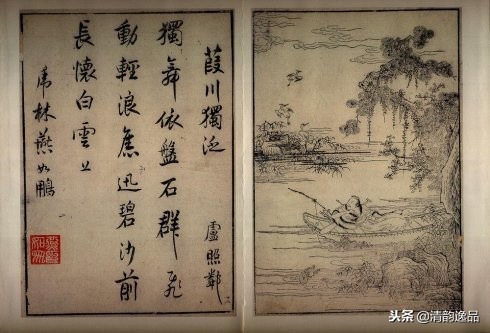 葭川獨泛 盧照鄰
獨舞依盤石群飛
動輕浪奮迅碧沙前
長懷白雲上
虎林燕如鵬
头条 @清韵逸品